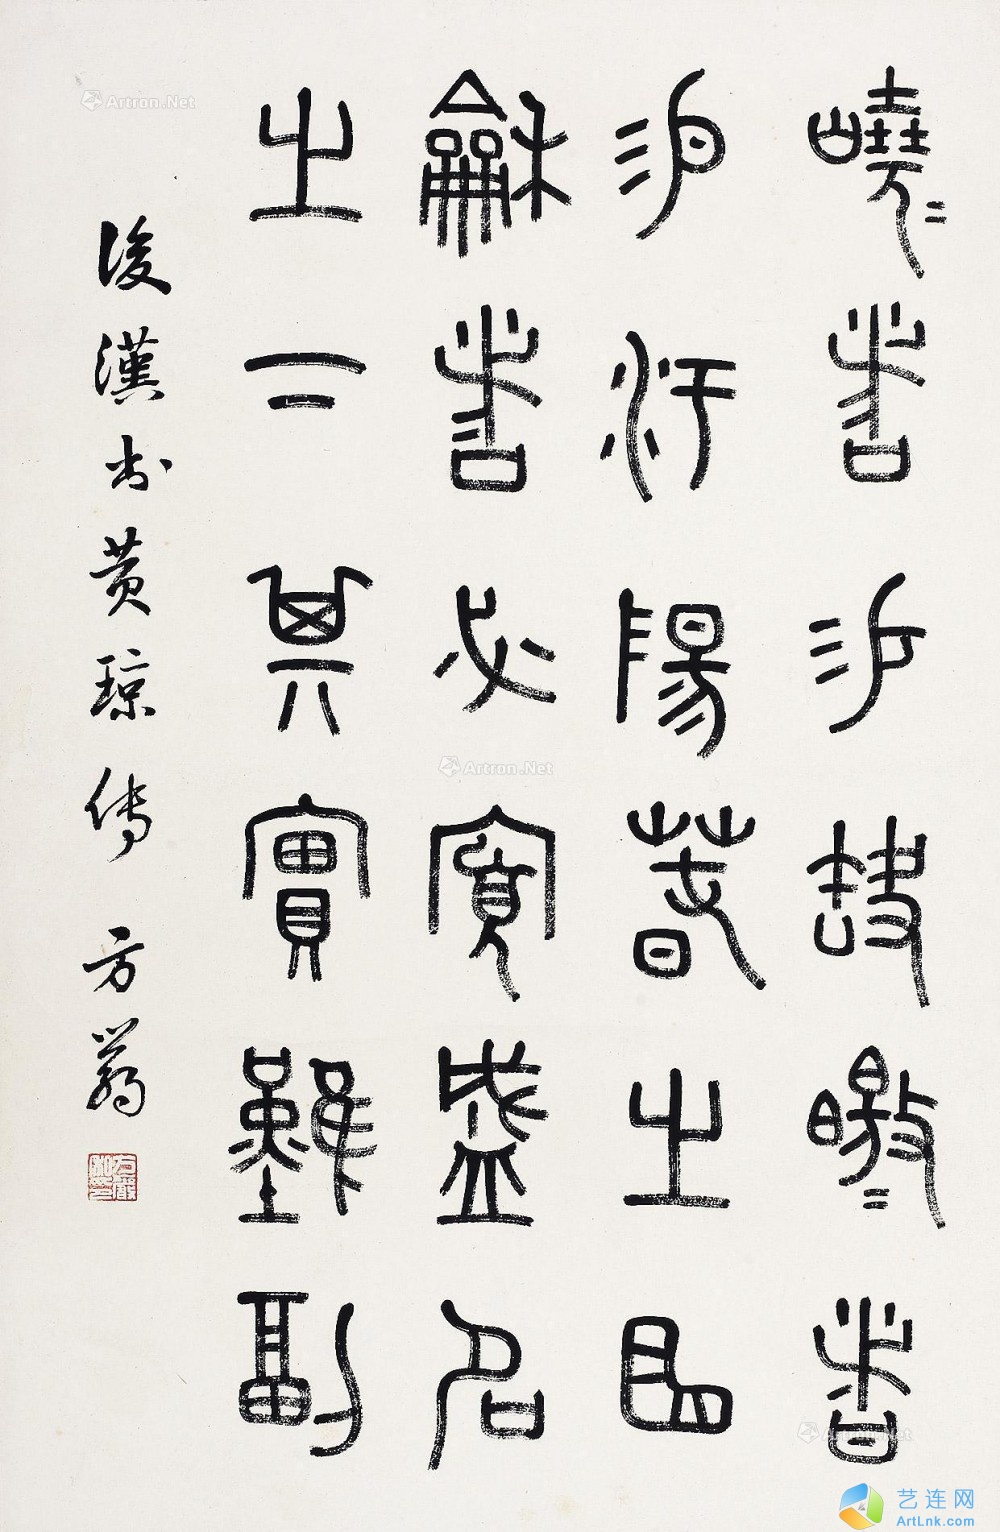 嶢〻者易缺曒〻者
易污陽春之曲
龢者必寡盛名
之下其實難副
後漢書黃瓊傳 方嚴
Artron.Net
Artron.Net
Artron.Net
艺连网
ArtLnk.com